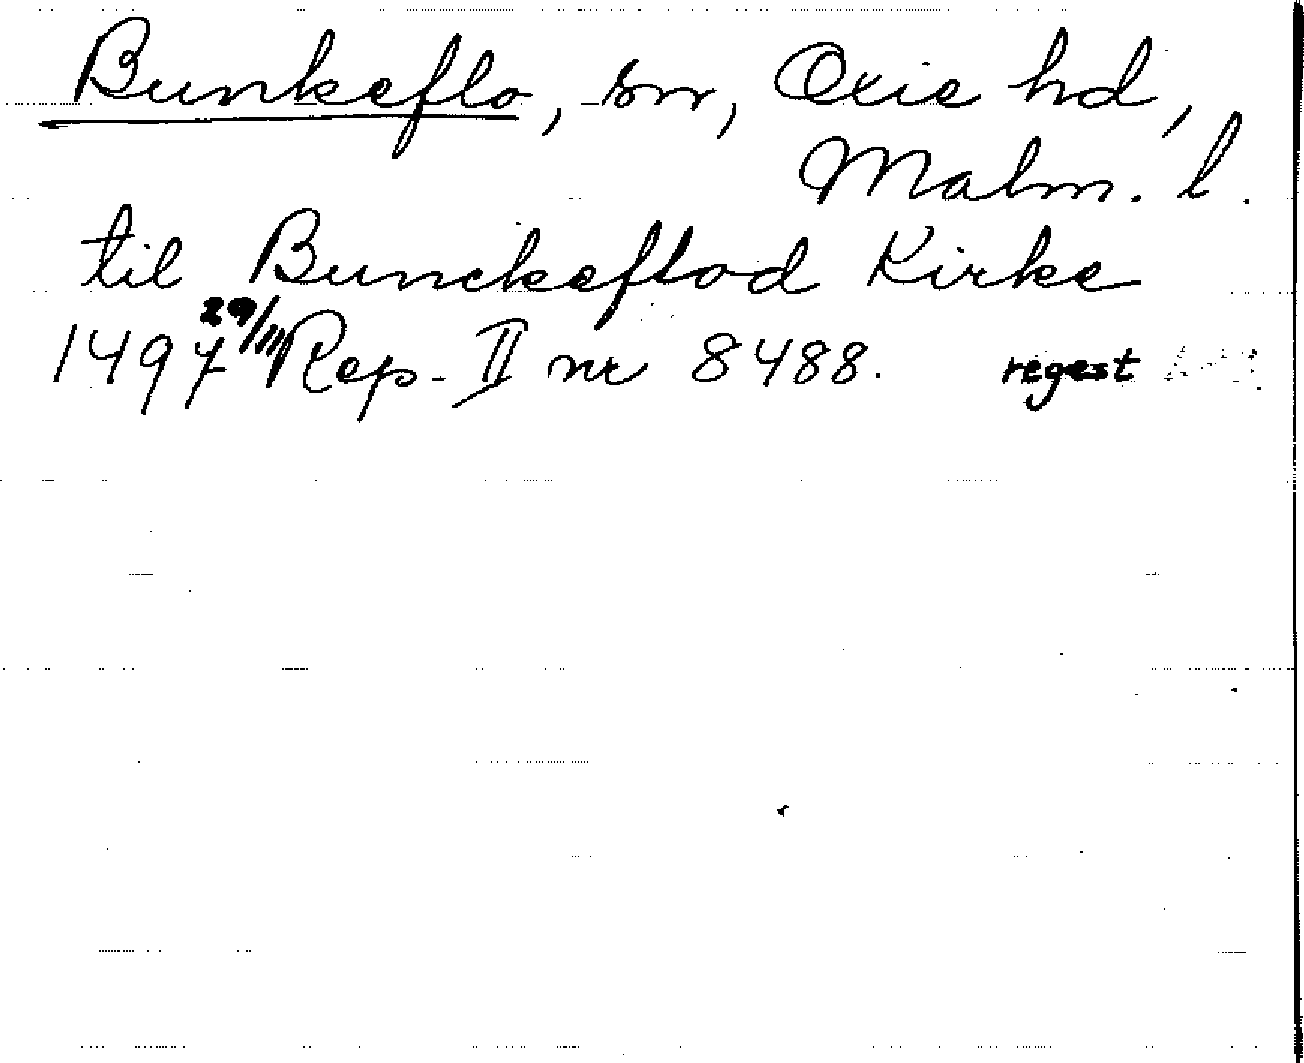 Bunkeflo, sn, Oxie hd,
Malm. l.
til Bunckeflod Kirke
1497 29/III Rep. II nr 8488. regest